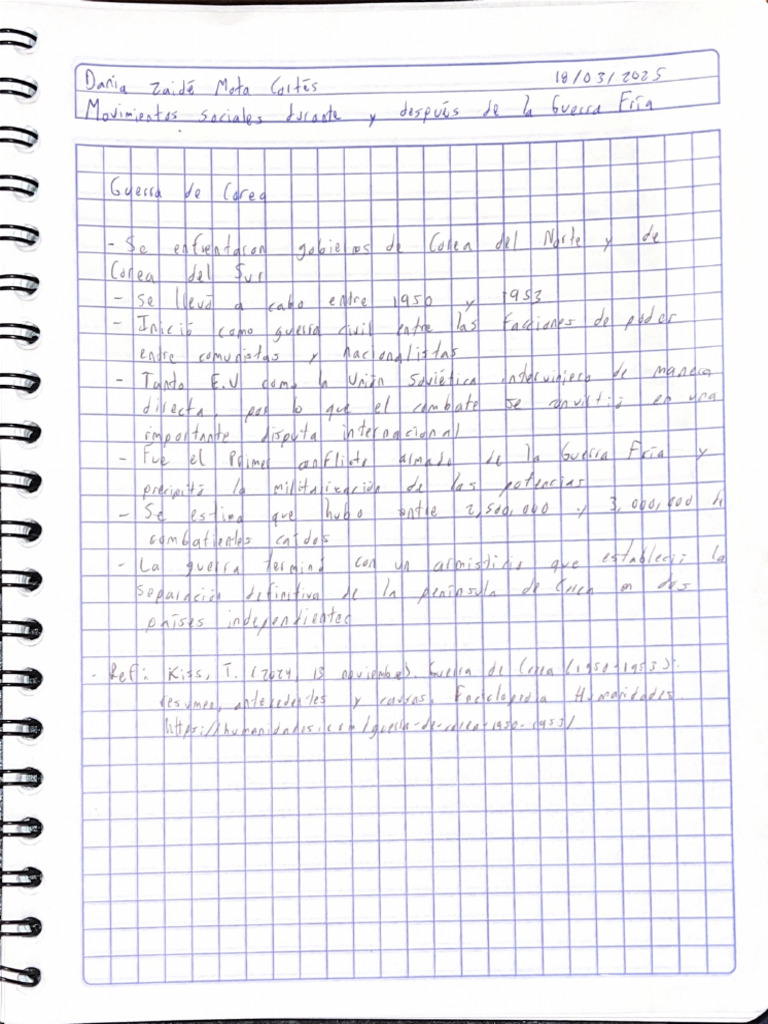 Dania Zaidé Mota Cortés 18/03/2025
Movimientos sociales durante y después de la Guerra Fría
Guerra de Corea
- Se enfrentaron gobiernos de Corea del Norte y de
Corea del Sur
- Se llevó a cabo entre 1950 y 1953
- Inició como guerra civil entre las facciones de poder
entre comunistas y nacionalistas
- Tanto E.U como la Unión Soviética intervinieron de manera
directa, por lo que el combate se convirtió en una
importante disputa internacional
- Fue el Primer conflicto armado de la Guerra Fría y
precipitó la militarización de las potencias
- Se estima que hubo entre 2,500,000 y 3,000,000
combatientes caídos
- La guerra terminó con un armisticio que estableció la
separación definitiva de la península de Corea en dos
países independientes
- Ref: Kiss, T. (2024, 13 noviembre). Guerra de Corea (1950-1953):
resumen, antecedentes y causas. Enciclopedia Humanidades
https://humanidades.com/guerra-de-corea-1950-1953/